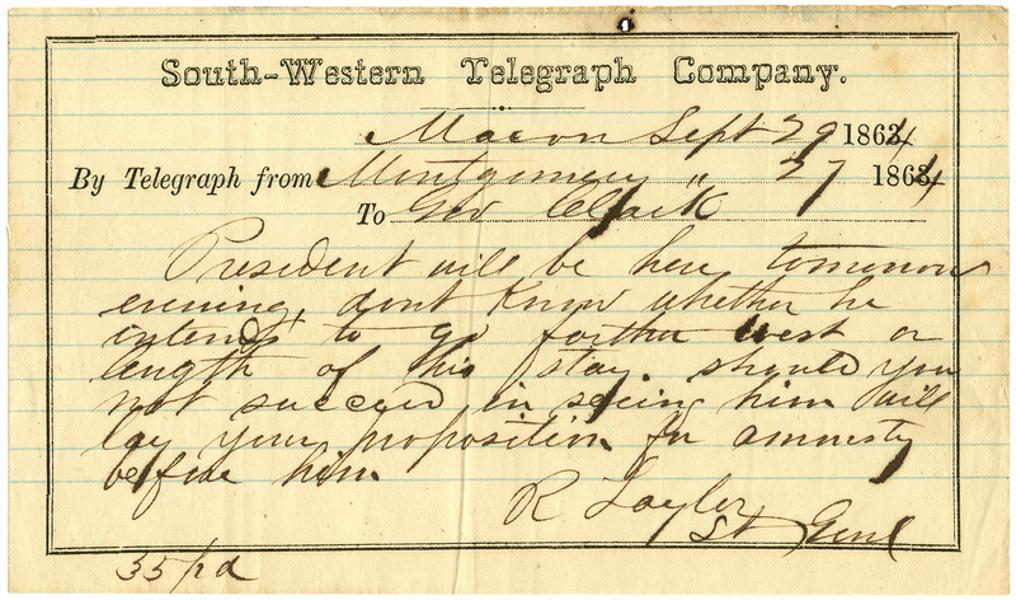 South-Western Telegraph Company.
Macon Sept 29 1864
By Telegraph from Montgomery " 27 1864
To Gov Clark
President will be here tomorrow
evening, dont know whether he
intends to go farther west or
length of his stay. should you
not succeed in seeing him will
lay your proposition for amnesty
before him
R Taylor
Lt Genl
35 pd